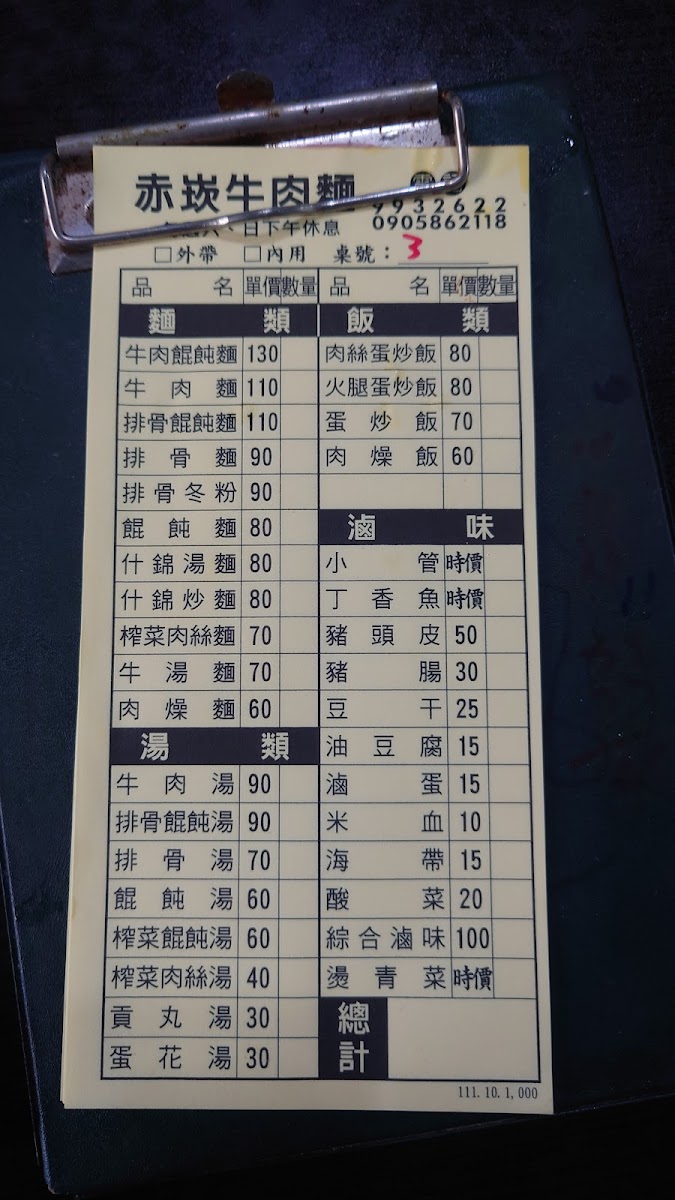 赤崁牛肉麵
9932622
0905862118
日下午休息
□外帶 □內用 桌號：3
品名 單價 數量 品名 單價 數量
麵類
牛肉餛飩麵 130
牛肉麵 110
排骨餛飩麵 110
排骨麵 90
排骨冬粉 90
餛飩麵 80
什錦湯麵 80
什錦炒麵 80
榨菜肉絲麵 70
牛湯麵 70
肉燥麵 60
湯類
牛肉湯 90
排骨餛飩湯 90
排骨湯 70
餛飩湯 60
榨菜餛飩湯 60
榨菜肉絲湯 40
貢丸湯 30
蛋花湯 30
飯類
肉絲蛋炒飯 80
火腿蛋炒飯 80
蛋炒飯 70
肉燥飯 60
滷味
小管 時價
丁香魚 時價
豬頭皮 50
豬腸 30
豆干 25
油豆腐 15
滷蛋 15
米血 10
海帶 15
酸菜 20
綜合滷味 100
燙青菜 時價
總計
111.10.1,000